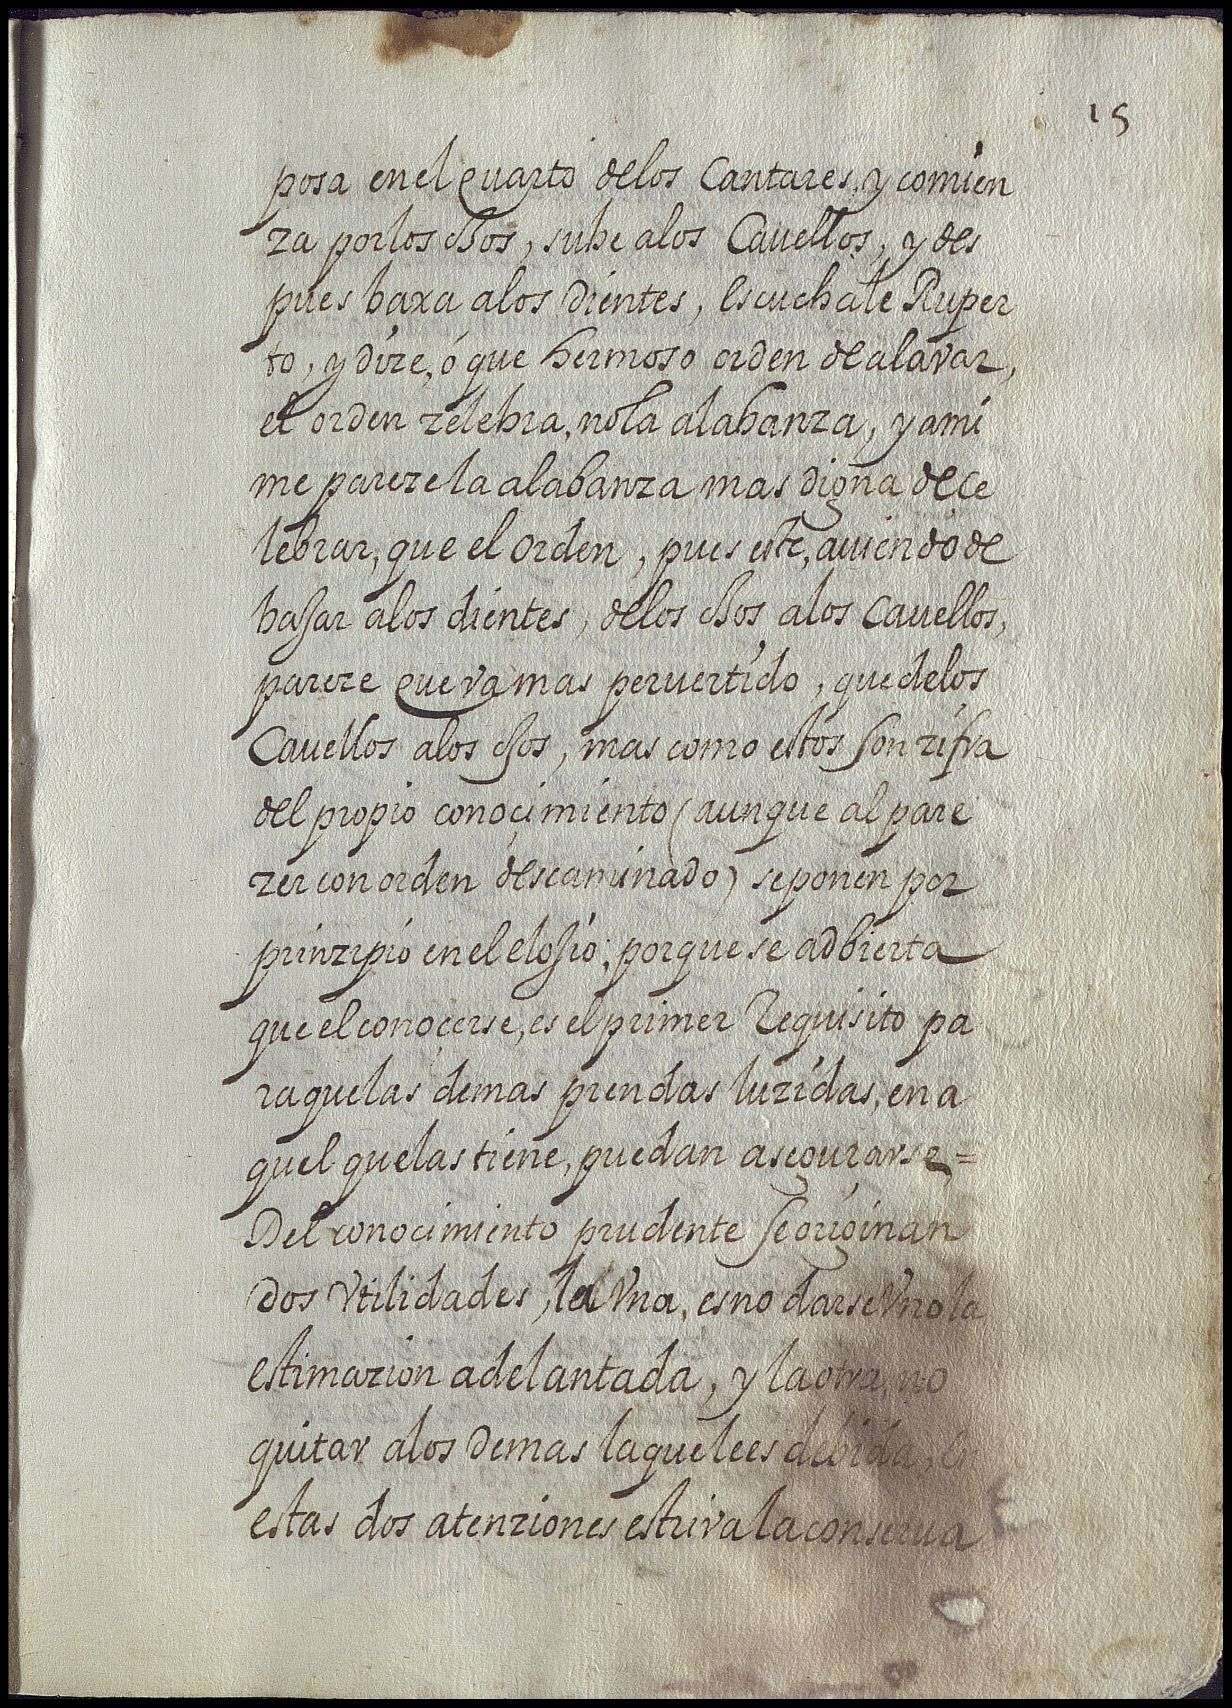 15
posa en el quarto delos Cantares, y comien
za por los ojos, sube alos Cauellos, y des
pues baxa alos dientes, escuchale Ruper
to, y dize, ó que hermoso orden de alavar,
el orden zelebra, no la alabanza, y ami
me pareze la alabanza mas digna dece
lebrar, que el orden, pues este, auiendo de
bajar alos dientes, delos ojos alos Cauellos,
pareze que va mas peruertido, que delos
Cauellos alos ojos, mas como estos son zifra
del propio conocimiento (aunque al pare
zer con orden descaminado) se ponen por
prinzipio en el elojio; porque se adbierta
que el conocerse, es el primer Requisito pa
ra que las demas prendas luzidas, en a
quel que las tiene, puedan asegurarse =
Del conocimiento prudente se originan
dos vtilidades, la vna, es no darse vno la
estimazion adelantada, y la otra, no
quitar alos demas la que les es debida,
estas dos atenziones estriva la conserua